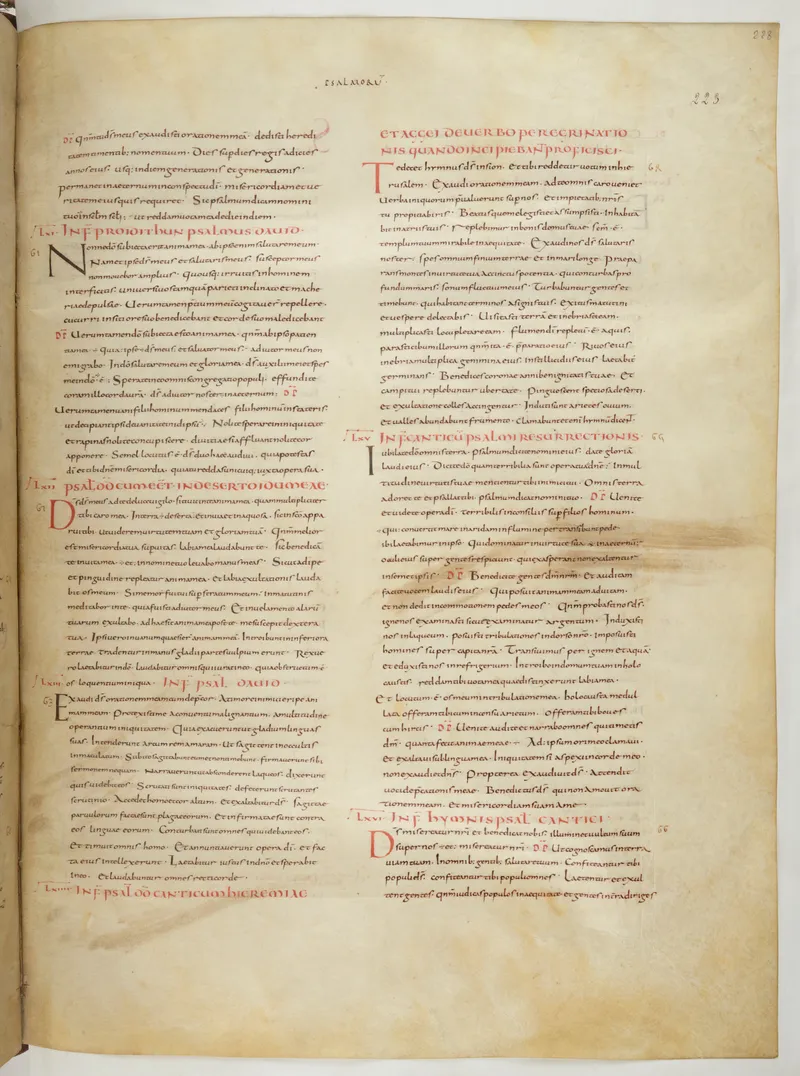 PSALMORU
228
223
quoniam ds meus exaudisti orationem meam · dedisti heredi
tatem timentibus nomen tuum · Dies sup dies regis adicies
annos eius · usq; in diem generationis et generationis ·
permanet in aeternum in conspectu di · misericordiam et ue
ritatem eius quis requiret · Sic psalmum dicam nomini
tuo in sclm scli · ut reddam uota mea de die in diem ·
Lxi · IN F PRO IDITHUN PSALMUS DAVID ·
61
Nonne do subiecta erit anima mea · ab ipso enim salutare meum ·
Nam et ipse ds meus et salutaris meus · susceptor meus
non mouebor amplius · Quousq; irruitis in hominem
interficitis · uniuersi uos tamqua parieti inclinato et mache
riae depulsae · Uerumtamen pretium meum cogitauer repellere ·
cucurri in siti ore suo benedicebant et corde suo maledicebant
Uerumtamen do subiecta esto anima mea · qnm ab ipso patien
tia mea · Quia ipse ds meus et saluator meus · adiutor meus non
emigrabo · In do salutare meum et gloria mea · ds auxilii mei et spes
mea in do e · Sperate in eo omnis congregatio populi · effundite
coram illo corda ura · ds adiutor noster in aeternum ·
Uerumtamen uani filii hominum mendaces filii hominum in stateris
ut decipiant ipsi de uanitate in id ipsu · Nolite sperare in iniquitate
et rapinas nolite concupiscere · diuitiae si affluant nolite cor
apponere · Semel locutus e ds duo haec audiui · quia potestas
di e et tibi dne misericordia · quia tu reddas unicuiq; iuxta opera sua ·
Lxii PSAL DD CUM EET IN DESERTO IDUMEAE ·
62
Ds ds meus ad te de luce uigilo · sitiuit in te anima mea · quam multipliciter
tibi caro mea · In terra deserta et inuia et inaquosa · sic in sco appa
rui tibi · ut uiderem uirtutem tuam et gloriam tua · Qnm melior
est misericordia tua sup uitas · labia mea laudabunt te · Sic benedica
te in uita mea · et in nomine tuo leuabo manus meas · Sicut adipe
et pinguedine repleatur anima mea · Et labia exultationis lauda
bit os meum · Si memor fui tui sup stratum meum · In matutinis
meditabor in te · quia fuisti adiutor meus · Et in uelamento alaru
tuarum exultabo · adhaesit anima mea post te · me suscepit dextera
tua · Ipsi uero in uanum quaesier animam mea · Introibunt in inferiora
terrae · Tradentur in manus gladii partes uulpium erunt · Rex ue
ro laetabitur in do · laudabitur omnis qui iurat in eo · quia obstructum e
Lxiii os loquentium iniqua · IN F PSAL DAVID ·
63
Exaudi ds orationem meam cum depcor · A timore inimici eripe ani
mam meam · Protexisti me a conuentu malignantium · a multitudine
operantium iniquitatem · Quia exacuerunt ut gladium linguas
suas · Intenderunt arcum rem amaram · Ut sagittent in occultis
inmaculatum · Subito sagittabunt eum et non timebunt · firmauerunt sibi
sermonem nequam · Narrauerunt ut absconderent laqueos · dixerunt
quis uidebit eos · Scrutati sunt iniquitates · defecerunt scrutantes
scrutinio · Accedet homo et cor altum · Et exaltabitur ds · sagittae
paruulorum factae sunt plagae eorum · Et infirmatae sunt contra
eos linguae eorum · Conturbati sunt omnes qui uidebant eos ·
et timuit omnis homo · Et annuntiauerunt opera di · et fac
ta eius intellexerunt · Laetabitur iustus in dno et sperabit
in eo · et laudabuntur omnes recti corde ·
Lxiiii IN F PSAL DD CANTICUM HIEREMIAE
ET AGGEI DE VERBO PEREGRINATIO
NIS QUANDO INCIPIEBANT PROFICISCI ·
64
Te decet hymnus ds in sion · Et tibi reddetur uotum in hie
rusalem · Exaudi orationem meam · Ad te omnis caro ueniet
Uerba iniquorum pualuerunt sup nos · et impietatib; nris
tu propitiaberis · Beatus quem elegisti et adsumpsisti · Inhabita
bit in atriis tuis · Replebimur in bonis domus tuae · scm e
templum tuum mirabile in aequitate · Exaudi nos ds salutaris
noster · spes omnium finium terrae · et in mari longe · Praepa
rans montes in uirtute tua accinctus potentia · qui conturbas pro
fundum maris · sonum fluctuum eius · Turbabuntur gentes et
timebunt · qui habitant terminos a signis tuis · exitus matutini
et uespere delectabis · Uisitasti terra et inebriasti eam ·
multiplicasti locupletare eam · Flumen di repletu e aquis ·
parasti cibum illorum qnm ita e pparatio eius · Riuos eius
inebria multiplica genimina eius · in stillicidiis eius laetabit
germinans · Benedices coronae anni benignitatis tuae · Et
campi tui replebuntur ubertate · Pinguescent speciosa deserti ·
et exultatione colles accingentur · Induti sunt arietes ouium ·
et ualles abundabunt frumento · clamabunt etenim hymnu dicent ·
Lxv IN F CANTICU PSALMI RESURRECTIONIS ·
65
Iubilate do omnis terra · psalmum dicite nomini eius · date gloria
laudi eius · Dicite do quam terribilia sunt opera tua dne · In mul
titudine uirtutis tuae mentientur tibi inimici tui · Omnis terra
adoret te et psallat tibi · psalmum dicat nomini tuo · Uenite
et uidete opera di · terribilis in consiliis sup filios hominum ·
qui conuertit mare in aridam in flumine pertransibunt pede ·
ibi laetabimur in ipso · Qui dominatur in uirtute sua in aeternu
oculi eius super gentes respiciunt · qui exasperant non exaltentur
in semetipsis · Benedicite gentes dm nrm · Et auditam
facite uocem laudis eius · Qui posuit animam meam ad uitam ·
et non dedit in commotionem pedes meos · Qnm probasti nos ds ·
igne nos examinasti sicut examinatur argentum · Induxisti
nos in laqueum · posuisti tribulationes in dorso nro · Imposuisti
homines super capita nra · Transiuimus per ignem et aqua
et eduxisti nos in refrigerium · Introibo in domum tuam in holo
caustis · reddam tibi uota mea quae distinxerunt labia mea ·
Et locutum e os meum in tribulatione mea · holocausta medul
lata offeram tibi cum incensu arietum · offeram tibi boues
cum hircis · Uenite audite et narrabo omnes qui timetis
dm · quanta fecit animae meae · Ad ipsum ore meo clamaui ·
et exaltaui sub lingua mea · Iniquitatem si aspexi in corde meo ·
non exaudiet dns · Propterea exaudiuit ds · Attendit
uoci depcationis meae · Benedictus ds qui non amouit ora
tionem meam · Et misericordiam suam a me ·
Lxvi IN F HYMNIS PSAL CANTICI
66
Ds misereatur nri et benedicat nobis · illuminet uultum suum
super nos et misereatur nri · Ut cognoscamus in terra
uiam tuam · In omnib; gentib; salutare tuum · Confiteantur tibi
populi ds · confiteantur tibi populi omnes · Laetentur et exul
tent gentes · qnm iudicas populos in aequitate · et gentes in tra dirigis